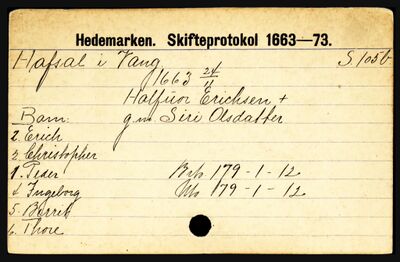 Hedemarken. Skifteprotokol 1663—73.
Hafsal i Vang S. 105b
1663 24/11
Halfuor Erichsen +
Barn: gm Siri Olsdatter
2. Erich
3. Christopher
1. Peder Brb 179-1-12
4 Ingeborg Ub 179-1-12
5. Berrit
6. Thore